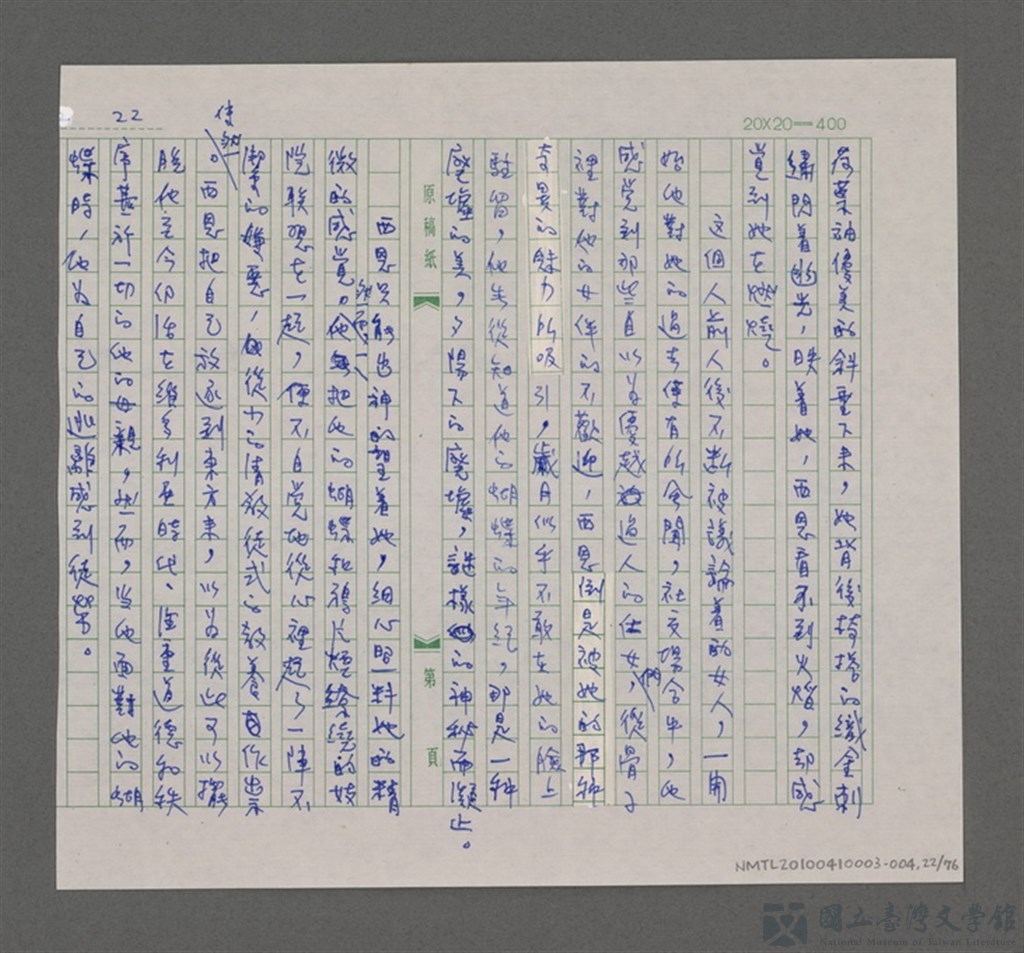 22
20X20=400
荷葉袖優美的斜垂下來，她背後椅搭的織金刺
繡閃着幽光，映着她，西恩看不到火焰，却感
覺到她在燃燒。
這個人前人後不断被議論着的女人，一開
始他對她的過去便有所會聞，社交場合中，他
感觉到那些自以为優越過人的仕女們，從骨子
裡對他的女伴的不歡迎，西恩倒是被她的那种
奇異的魅力所吸引，歲月似乎不敢在她的臉上
駐留，他先從知道他的蝴蝶的年紀，那是一种
廢墟的美，夕陽下的廢墟，謎樣的神秘而凝止。
原稿紙
第 頁
西恩只能出神的望着她，細心照料她的精
微的感觉。然而，他把他的蝴蝶和鴉片煙繚繞的妓
院联想在一起，便不自覺地從心裡起了一陣不
潔的嫌惡，他從小的清教徒式的教養使然作祟
。西恩把自己放逐到東方來，以为從此可以擺
脫他至今仍活在維多利亞時代、注重道德和秩
序甚於一切的他的母親，然而，当他面對他的蝴
蝶時，他为自己的逃離感到徒勞。
NMTL20100410003-004,22/76
國立臺灣文學館
National Museum of Taiwan Literature